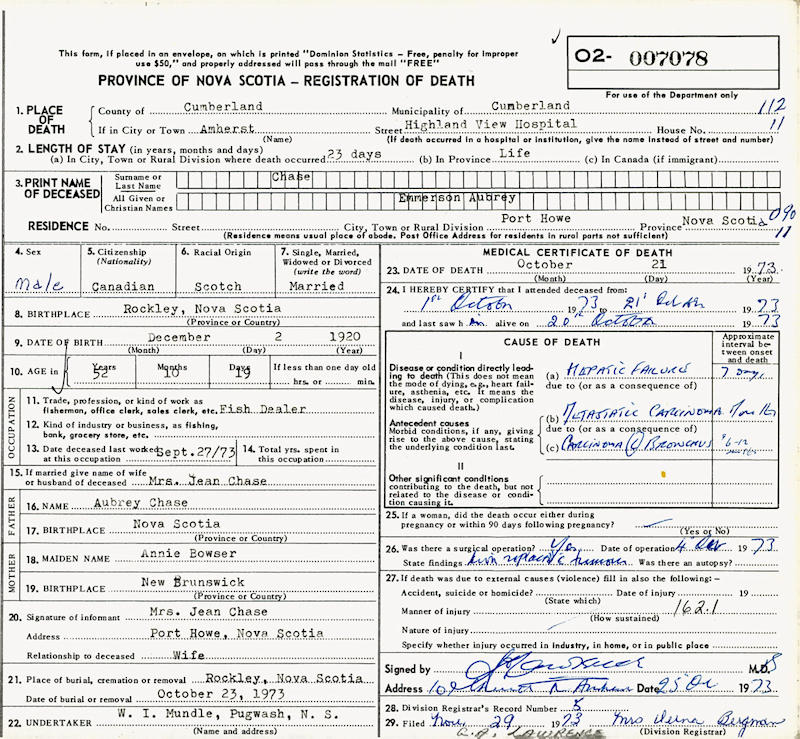 This form, if placed in an envelope, on which is printed "Dominion Statistics – Free, penalty for improper
use $50," and properly addressed will pass through the mail "FREE"
PROVINCE OF NOVA SCOTIA – REGISTRATION OF DEATH
O2- 007078
For use of the Department only
1. PLACE OF DEATH
County of Cumberland Municipality of Cumberland 112
If in City or Town Amherst Street Highland View Hospital House No. 11
(Name) (If death occurred in a hospital or institution, give the name instead of street and number)
2. LENGTH OF STAY (in years, months and days)
(a) In City, Town or Rural Division where death occurred 23 days (b) In Province Life (c) In Canada (if immigrant)
3. PRINT NAME OF DECEASED
Surname or Last Name Chase
All Given or Christian Names Emmerson Aubrey
RESIDENCE No. Street City, Town or Rural Division Port Howe Province Nova Scotia 090
11
(Residence means usual place of abode. Post Office Address for residents in rural parts not sufficient)
4. Sex
Male
5. Citizenship (Nationality)
Canadian
6. Racial Origin
Scotch
7. Single, Married, Widowed or Divorced (write the word)
Married
8. BIRTHPLACE Rockley, Nova Scotia
(Province or Country)
9. DATE OF BIRTH December 2 1920
(Month) (Day) (Year)
10. AGE in Years 52 Months 10 Days 19 If less than one day old
hrs. or min.
OCCUPATION
11. Trade, profession, or kind of work as
fisherman, office clerk, sales clerk, etc. Fish Dealer
12. Kind of industry or business, as fishing,
bank, grocery store, etc.
13. Date deceased last worked at this occupation Sept.27/73
14. Total yrs. spent in this occupation
15. If married give name of wife
or husband of deceased Mrs. Jean Chase
FATHER
16. NAME Aubrey Chase
17. BIRTHPLACE Nova Scotia
(Province or Country)
MOTHER
18. MAIDEN NAME Annie Bowser
19. BIRTHPLACE New Brunswick
(Province or Country)
20. Signature of informant Mrs. Jean Chase
Address Port Howe, Nova Scotia
Relationship to deceased Wife
21. Place of burial, cremation or removal Rockley, Nova Scotia
Date of burial or removal October 23, 1973
22. UNDERTAKER W. I. Mundle, Pugwash, N. S.
(Name and address)
MEDICAL CERTIFICATE OF DEATH
23. DATE OF DEATH October 21 1973
(Month) (Day) (Year)
24. I HEREBY CERTIFY that I attended deceased from:
1st October 1973 to 21st 1973
and last saw h im alive on 20th October 1973
CAUSE OF DEATH
Approximate interval between onset and death
I
Disease or condition directly leading to death (This does not mean
the mode of dying, e.g., heart failure, asthenia, etc. It means the
disease, injury, or complication which caused death.)
(a) HEPATIC FAILURE 7 Days
due to (or as a consequence of)
Antecedent causes
Morbid conditions, if any, giving rise to the above cause, stating
the underlying condition last.
(b) METASTATIC CARCINOMA
due to (or as a consequence of)
(c) CARCINOMA BRONCHUS 6-12
II
Other significant conditions
contributing to the death, but not related to the disease or condition causing it.
25. If a woman, did the death occur either during
pregnancy or within 90 days following pregnancy?
(Yes or No)
26. Was there a surgical operation? Yes Date of operation 4 1973
State findings Was there an autopsy?
27. If death was due to external causes (violence) fill in also the following:–
Accident, suicide or homicide? Date of injury 19
(State which)
Manner of injury 162.1
(How sustained)
Nature of injury
Specify whether injury occurred in industry, in home, or in public place
Signed by M.D.
Address Date 25 1973
28. Division Registrar's Record Number 5
29. Filed Nov. 29 1973 Mrs Bergman
(Division Registrar)
LAWRENCE